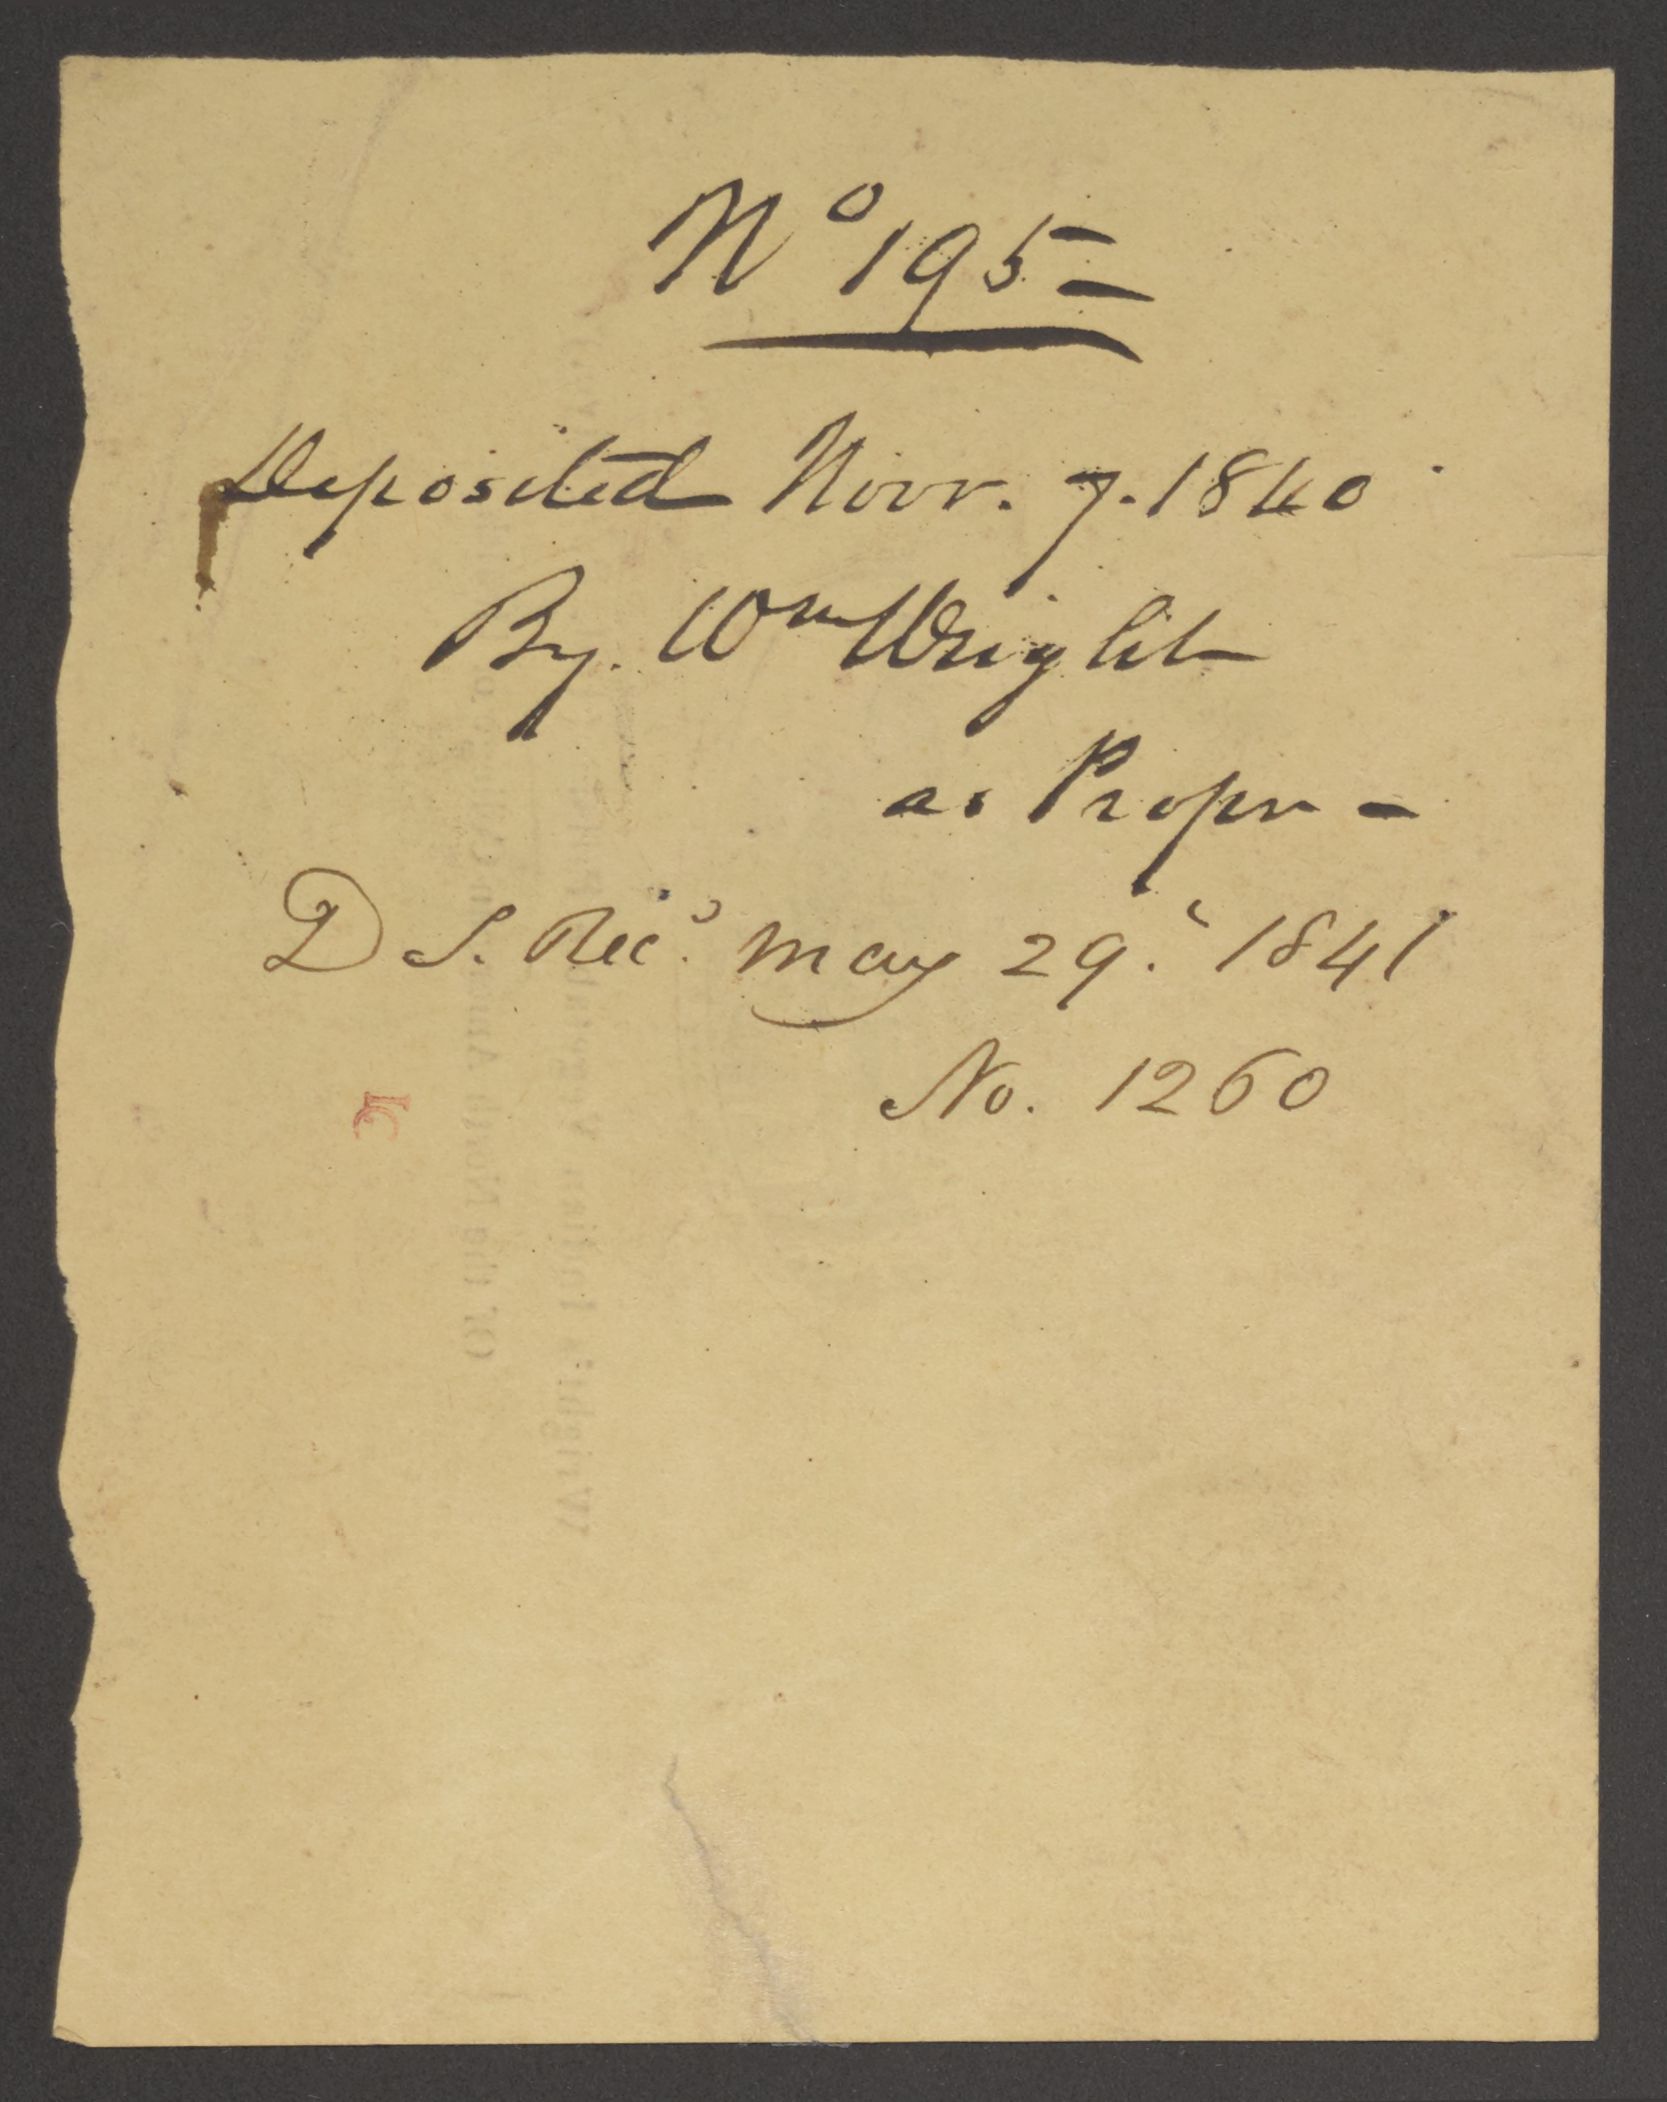 Nº 195=
Deposited Novr. 7. 1840
By. Wm Wright
as Propr -
D S. Recd. May 29. 1841
No. 1260
5